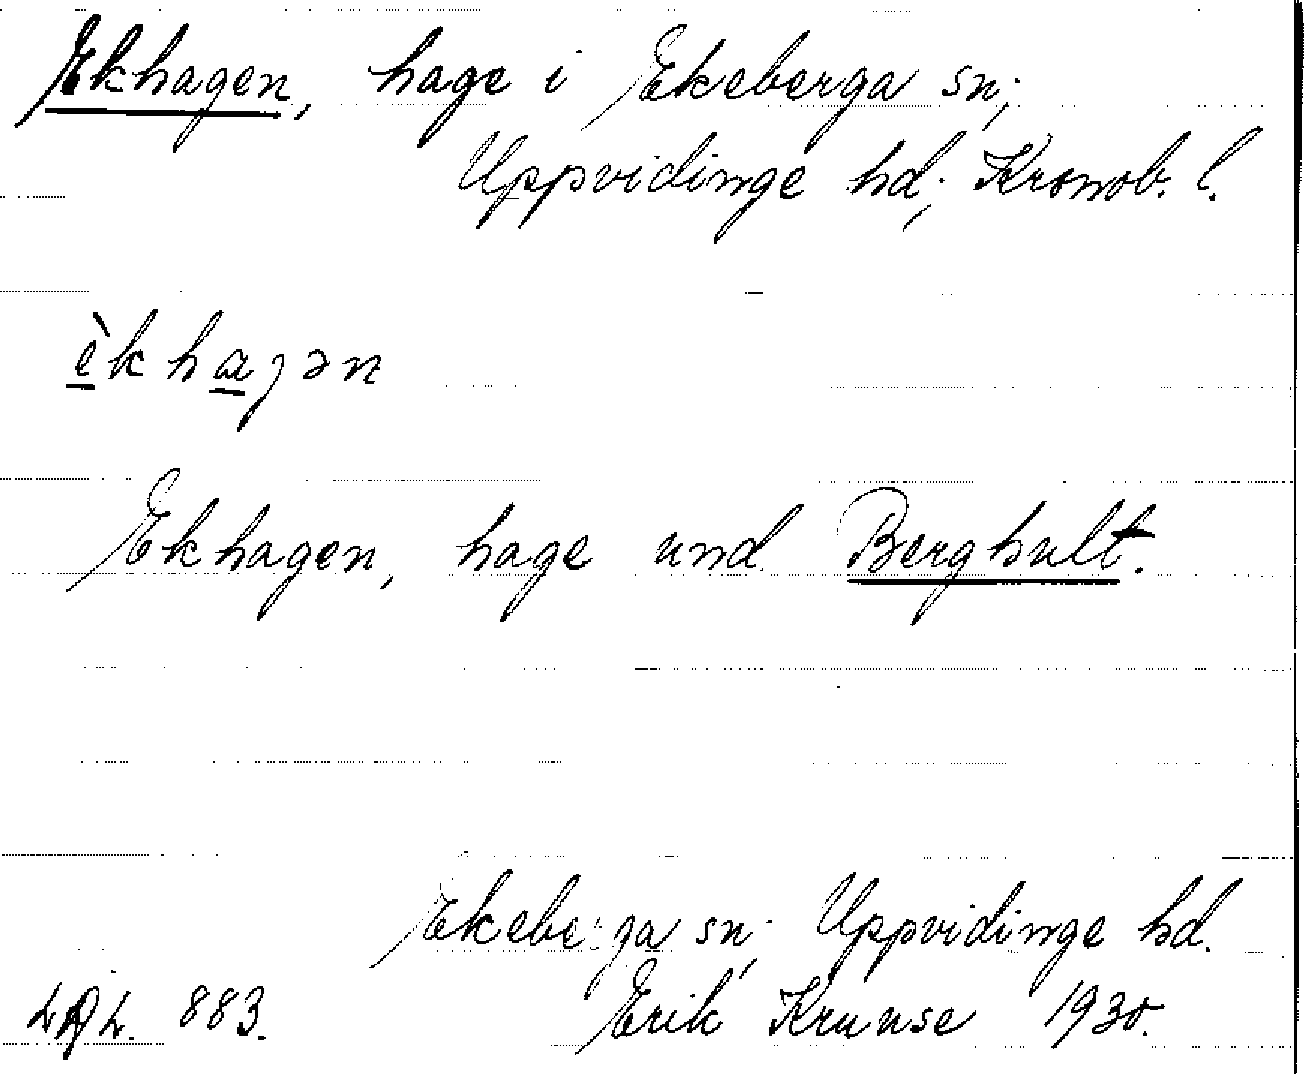 Ekhagen, hage i Ekeberga sn;
Uppvidinge hd; Kronob. l.
èkhaʒən
Ekhagen, hage und Berghult.
Ekeberga sn; Uppvidinge hd.
883. Erik Krunse 1930.